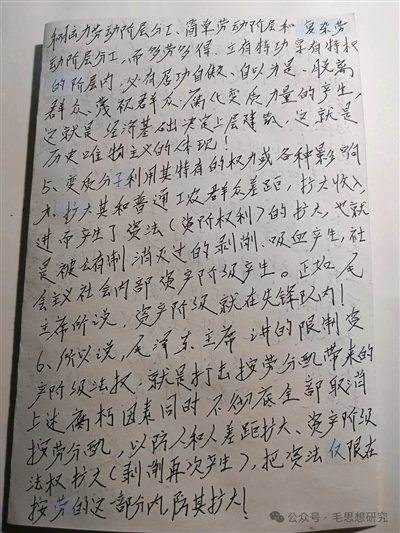 和体力劳动阶层分工、简单劳动阶层和复杂劳
动阶层分工,而多劳多得、立有特功享有特权
的阶层内,必有居功自傲、自以为是、脱离
群众、蔑视群众、腐化变质力量的产生,
这就是经济基础决定上层建筑,这就是
历史唯物主义的体现!
5、变质分子利用其特有的权力或各种影响
力,扩大其和普通工农群众差距,扩大收入,
进而产生了资法(资阶权利)的扩大,也就
是被公有制消灭过的剥削、吸血产生,社
会主义社会内部资产阶级产生。正如毛
主席所说,资产阶级就在先锋队内!
6、所以说,毛泽东主席讲的限制资
产阶级法权,就是打击按劳分配带来的
上述腐朽因素同时不彻底全部取消
按劳分配,以防人和人差距扩大、资产阶级
法权扩大(剥削再次产生),把资法仅限在
按劳的这部分内防其扩大!
公众号·毛思想研究